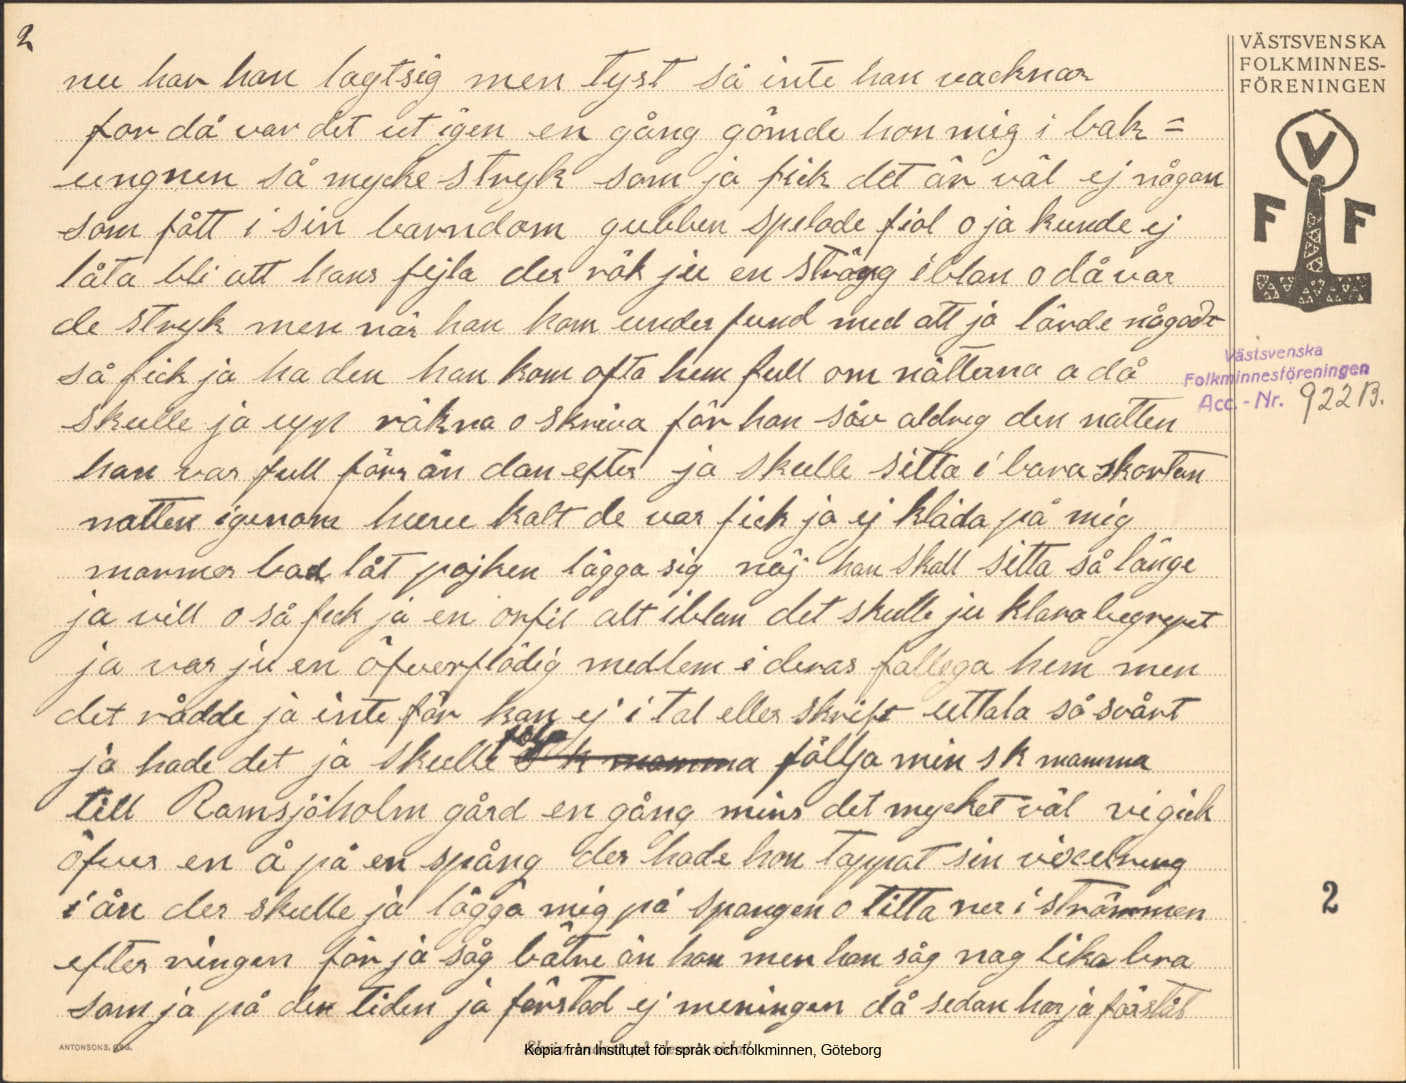 2
VÄSTSVENSKA
FOLKMINNES-
FÖRENINGEN
V
F F
nu har han lagtsig men tyst så inte han vacknar
for då var det ut igen en gång gömde hon mig i bak =
ungnen så mycke stryk som ja fick det är väl ej någon
som fått i sin barndom gubben spelade fiol o ja kunde ej
låta bli att hans fejla der rök ju en sträng iblan o då var
de stryk men när han kom under fund med att ja lärde något
så fick ja ha den han kom ofta hem full om nätterna o då
skulle ja upp räkna o skriva för han sov aldrig den natten
han var full förr än dan efter ja skulle sitta i bara skortan
natten igenom huru kalt de var fick ja ej kläda på mig
mormor bad låt pojken lägga sig näj han skall sitta så länge
ja vill o så fick ja en örfil alt iblan det skulle ju klara begrepet
ja var ju en öfverflödig medlem i deras fallega hem men
det rådde ja inte för kan ej i tal eller skrift uttala så svårt
ja hade det ja skulle följa s k mamma föllja min s k mamma
till Ramsjöholm gård en gång mins det mycket väl vi gick
öfver en å på en spång der hade hon tappat sin vixelrning
i ån der skulle ja lägga mig på spången o titta ner i strömmen
efter ringen för ja såg bätre än hon men hon såg nag lika bra
som ja på den tiden ja förstod ej meningen då sedan har ja förstås
Västsvenska
Folkminnesföreningen
Acc. - Nr. 922 B.
2
ANTONSONS, GBG.
Kopia från Institutet för språk och folkminnen, Göteborg